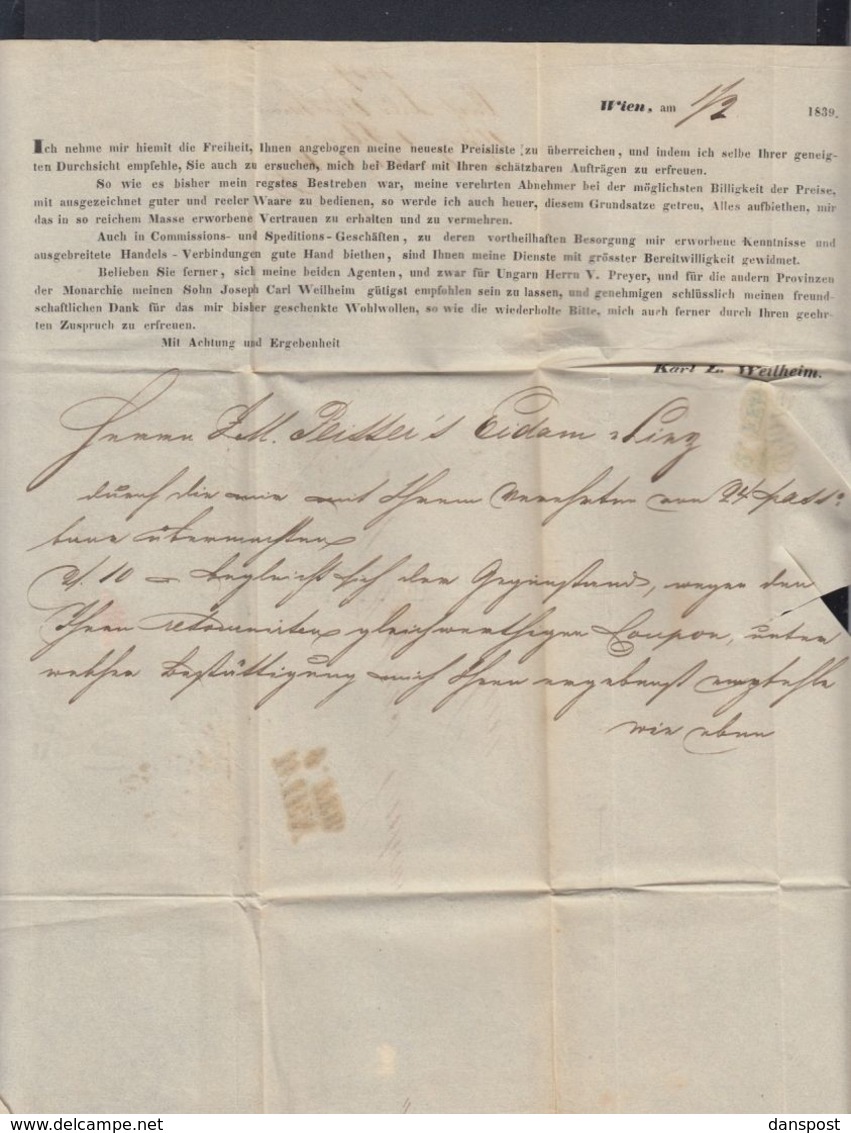 Wien, am 1/2 1839.
Ich nehme mir hiemit die Freiheit, Ihnen angebogen meine neueste Preisliste zu überreichen, und indem ich selbe Ihrer geneig-
ten Durchsicht empfehle, Sie auch zu ersuchen, mich bei Bedarf mit Ihren schätzbaren Aufträgen zu erfreuen.
So wie es bisher mein regstes Bestreben war, meine verehrten Abnehmer bei der möglichsten Billigkeit der Preise,
mit ausgezeichnet guter und reeler Waare zu bedienen, so werde ich auch heuer, diesem Grundsatze getreu, Alles aufbiethen, mir
das in so reichem Masse erworbene Vertrauen zu erhalten und zu vermehren.
Auch in Commissions- und Speditions-Geschäften, zu deren vortheilhaften Besorgung mir erworbene Kenntnisse und
ausgebreitete Handels-Verbindungen gute Hand biethen, sind Ihnen meine Dienste mit grösster Bereitwilligkeit gewidmet.
Belieben Sie ferner, sich meine beiden Agenten, und zwar für Ungarn Herrn V. Preyer, und für die andern Provinzen
der Monarchie meinen Sohn Joseph Carl Weilheim gütigst empfohlen sein zu lassen, und genehmigen schlüsslich meinen freund-
schaftlichen Dank für das mir bisher geschenkte Wohlwollen, so wie die wiederholte Bitte, mich auch ferner durch Ihren geehr-
ten Zuspruch zu erfreuen.
Mit Achtung und Ergebenheit
Karl L. Weilheim.
Herrn Eidam Linz
durch die mir mit Ihrem Verehrten von 24 pass
übermachten
10 begleicht sich der Gegenstand, wegen den
Ihnen retournirten gleichwerthigen Coupon, unter
welcher Bestättigung mich Ihnen ergebenst empfehle
wie oben
danspost